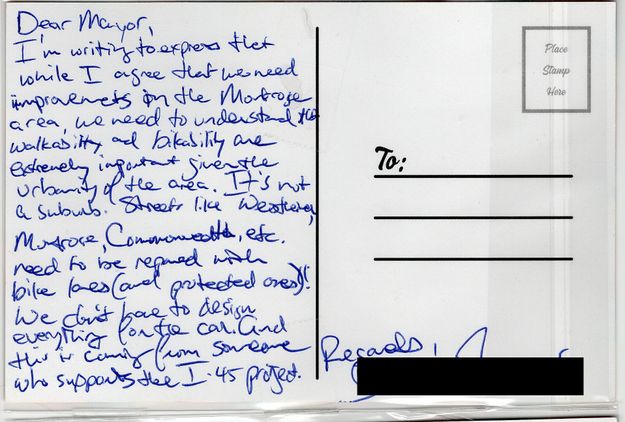 Dear Mayor,
I'm writing to express that
while I agree that we need
improvements in the Montrose
area, we need to understand the
walkability and bikability are
extremely important given the
urbanity of the area. It's not
a suburb. Streets like Westheimer,
Montrose, Commonwealth, etc.
need to be repaired with
bike lanes (and protected ones)!
We don't have to design
everything for the car. And
this is coming from someone
who supports the I-45 project.
Regards,
Place
Stamp
Here
To: